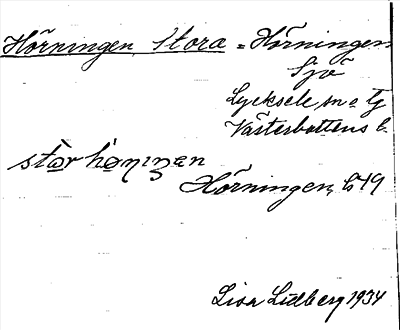 Hörningen, Stora = Hörningen
Sjö
Lycksele sn o tg
Västerbottens l.
Hörningen, b49
Lisa Lidberg 1934